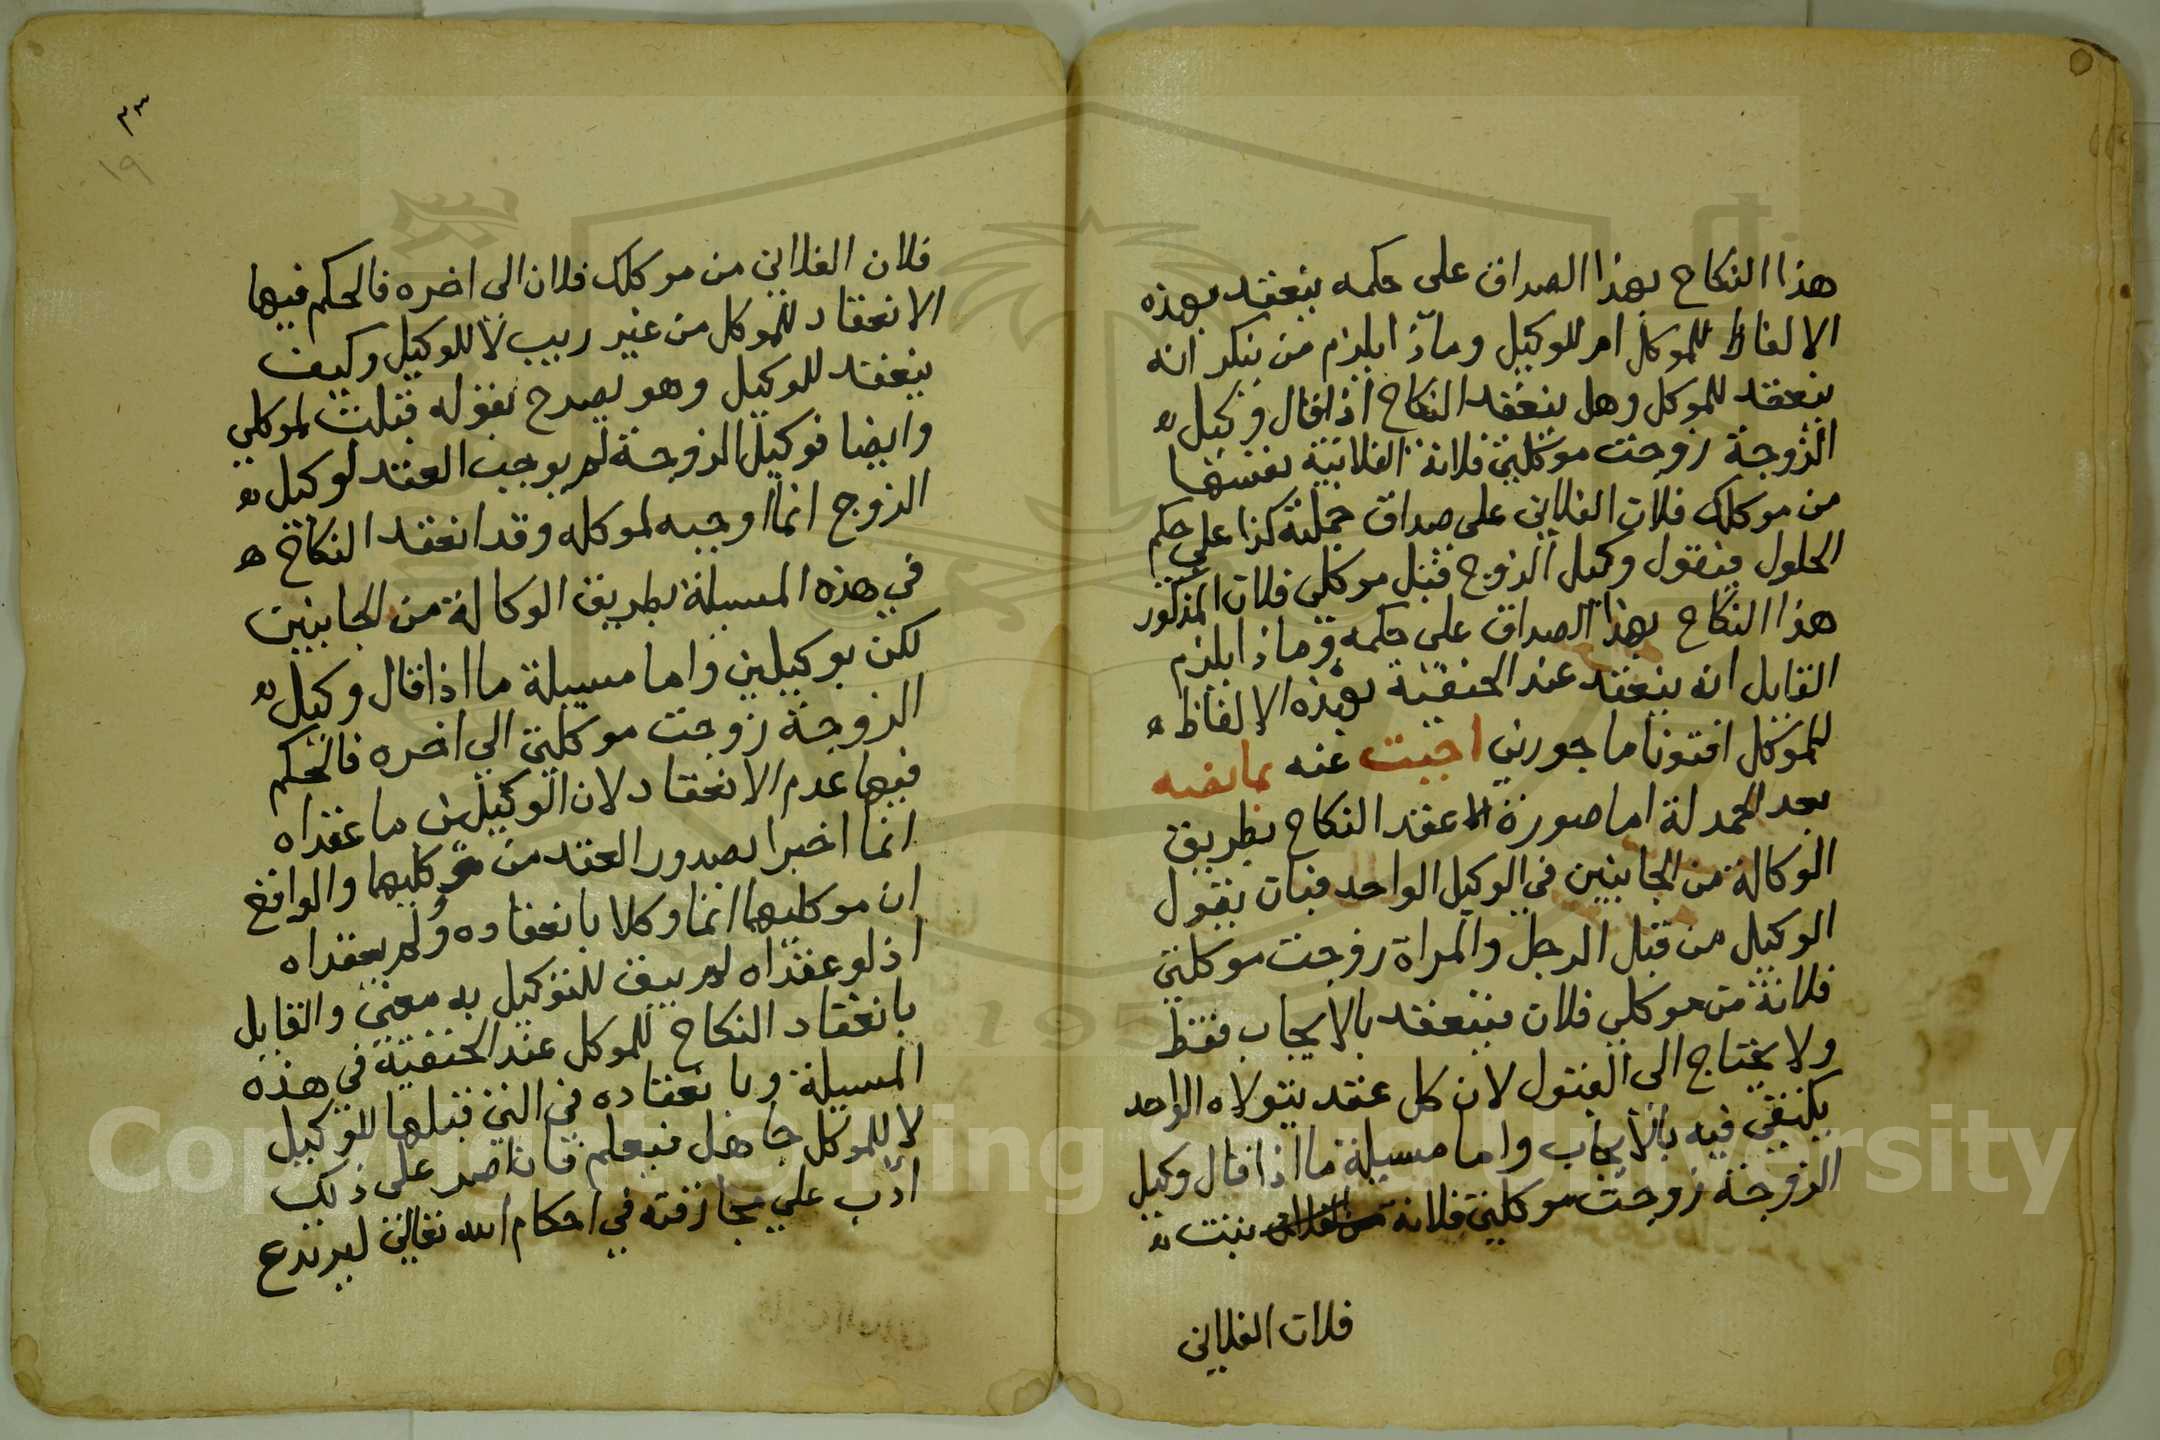 هذا النكاح بهذا الصداق على حكمه ينعقد بهذه
الالفاظ للموكل ام للوكيل وماذا يلزم من ينكر انه
ينعقد للموكل وهل ينعقد النكاح اذا قال وكيل
الزوجة زوجت موكلتي فلانة الفلانية نفسها
من موكلك فلان الفلاني على صداق جملته كذا على حكم
الحلول فيقول وكيل الزوج قبل موكلي فلان المذكور
هذا النكاح بهذا الصداق على حكمه وماذا يلزم
القايل انه ينعقد عند الحنفية بهذه الالفاظ
للموكل افتونا ماجورين اجبت عنه بما نصه
بعد الحمدلة اما صورة عقد النكاح بطريق
الوكالة من الجانبين في الوكيل الواحد فبان يقول
الوكيل من قبل الرجل والمراة زوجت موكلتي
فلانة من موكلي فلان فينعقد بالايجاب فقط
ولا يحتاج الى القبول لان كل عقد يتولاه الواحد
يكتفي فيه بالايجاب واما مسيلة ما اذا قال وكيل
الزوجة زوجت موكلتي فلانة بنت
فلان الفلاني
٣٣
١٩
فلان الفلاني من موكلك فلان الى اخره فالحكم فيها
الانعقاد للموكل من غير ريب لا للوكيل وكيف
ينعقد للوكيل وهو يصرح بقوله قبلت لموكلي
وايضا فوكيل الزوجة لم يوجب العقد لوكيل
الزوج انما اوجبه لموكله وقد انعقد النكاح
في هذه المسيلة بطريق الوكالة من الجانبين
لكن بوكيلين واما مسيلة ما اذا قال وكيل
الزوجة زوجت موكلتي الى اخره فالحكم
فيها عدم الانعقاد لان الوكيلين ما عقداه
انما اخبرا بصدور العقد من موكليهما والواقع
ان موكليهما انما وكلا بانعقاده ولم يعقداه
اذ لو عقداه لم يبق للتوكيل به معنى والقايل
بانعقاد النكاح للموكل عند الحنفية في هذه
المسيلة وبانعقاده في التي قبلها للوكيل
لا للموكل جاهل فيعلم فان اصر على ذلك
ادب على مجازفته في احكام الله تعالى ليرتدع
Copyright © King Saud University